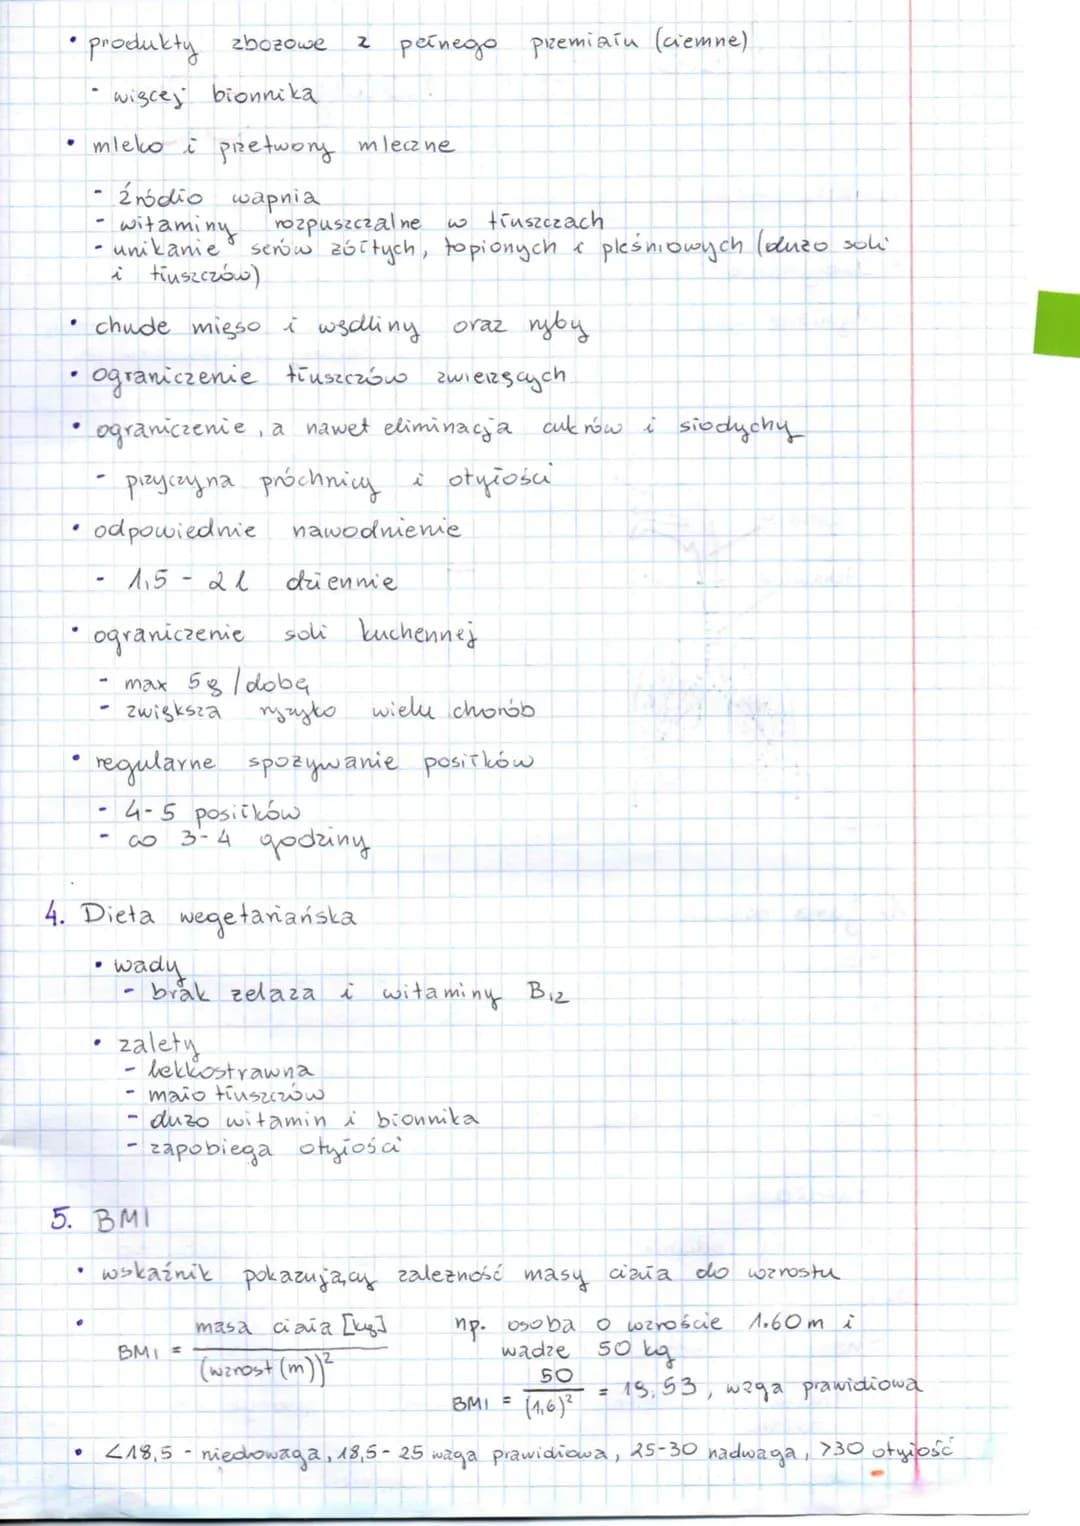 • produkty zbożowe z pełnego przemiału (ciemne)
- więcej błonnika
• mleko i przetwory mleczne
- źródło wapnia
- witaminy rozpuszczalne w tłuszczach
- unikanie serów żółtych, topionych i pleśniowych (dużo soli
i tłuszczów)
• chude mięso i wędliny oraz ryby
• ograniczenie tłuszczów zwierzęcych
• ograniczenie, a nawet eliminacja cukrów i słodychy
- przyczyna próchnicy i otyłości
• odpowiednie nawodnienie
- 1,5 - 2 l dziennie
• ograniczenie soli kuchennej
- max 5g /dobę
- zwiększa ryzyko wielu chorób
• regularne spożywanie posiłków
- 4-5 posiłków
- co 3-4 godziny
4. Dieta wegetariańska
• wady
- brak żelaza i witaminy B12
• zalety
- lekkostrawna
- mało tłuszczów
- dużo witamin i błonnika
- zapobiega otyłości
5. BMI
• wskaźnik pokazujący zależność masy ciała do wzrostu
• BMI = masa ciała [kg] / (wzrost (m))²
np. osoba o wzroście 1.60 m i
wadze 50 kg
BMI = 50 / (1,6)² = 19,53, waga prawidłowa
• <18,5 - niedowaga, 18,5 - 25 waga prawidłowa, 25-30 nadwaga, >30 otyłość